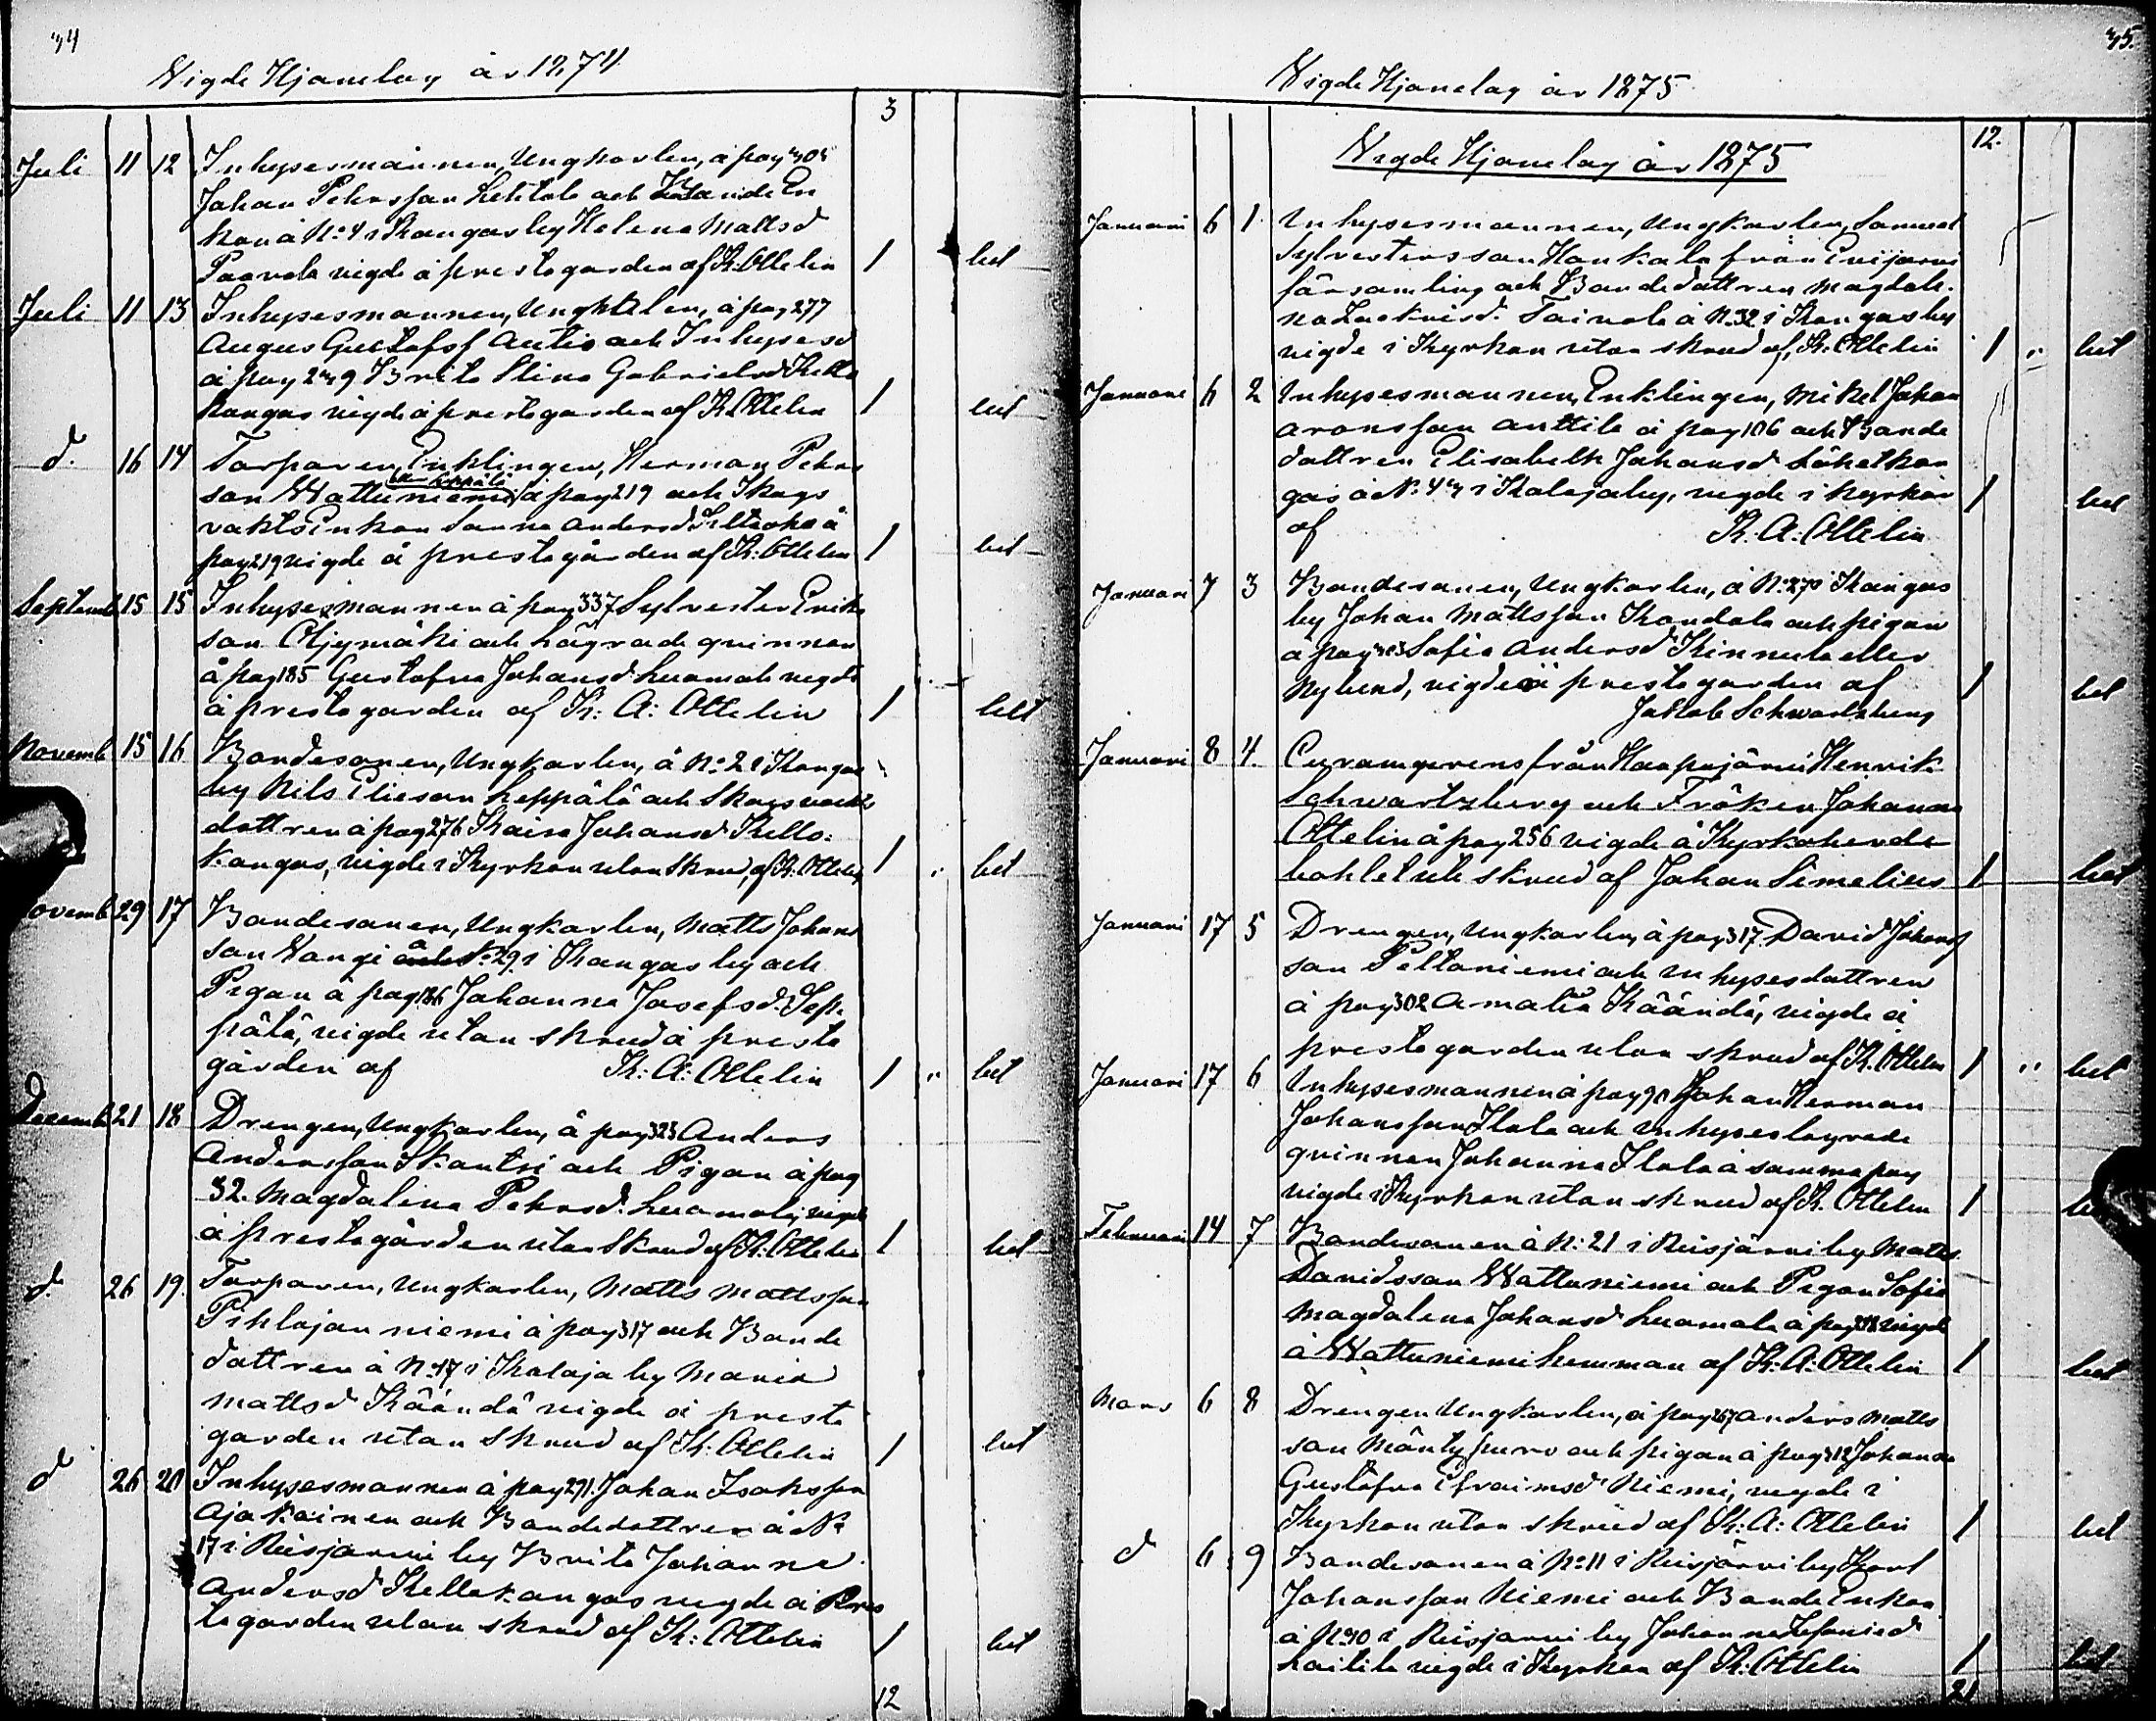 34
Wigde Hjonelag år 1874
3
Juli 11 12 Inhysesmannen, Ungkarlen, å pag 303
Johan Pehrsson Lehtola och Bonde En
kan å No: 4 i Kangas by Helena Mattsd
Paavola vigde å prestegården af K: Ottelin 1 bet
Juli 11 13 Inhysesmannen, Ungkarlen, å pag 277
August Gustafss Autio och Inhysesd
å pag 239 Brita Stina Gabrielsd Kello
kangas vigde å prestegården af K. Ottelin 1 bet
d. 16 14 Torparen, Enklingen, Herman Pehrs
son Wattuniemi å pag 219 och Skogs
vakts Enkan Sanna Andersd å
pag 219 vigde å prestegården af K: Ottelin 1 bet
Septemb 15 15 Inhysesmannen å pag 337 Sylvester Eriks
son Öljymäki och Lägrade qvinnan
å pag 185 Gustafva Johansd Luomala vigde
å prestegården af K: A: Ottelin 1 bet
Novemb 15 16 Bondesonen, Ungkarlen, å No: 2 i Kangas
by Nils Eliesson Leppälä och Skogsvakts
dottren å pag 276 Kaisa Johansd Kello:
kangas, vigde i Kyrkan utan Skrud, af K: Ottelin 1 " bet
Novemb 29 17 Bondesonen, Ungkarlen, Matts Johans
son Wangi å No: 29 i Kangas by och
Pigan å pag 186 Johanna Josefsd: Sep-
pälä, vigde utan skrud å preste
gården af K: A: Ottelin 1 " bet
Decemb 21 18 Drengen, Ungkarlen, å pag 323 Anders
Andersson Skantsi och Pigan å pag
32. Magdalena Pehrsd: Luomala; vigde
å prestegården utan Skrud af K: Ottelin 1 bet
d. 26 19. Torparen, Ungkarlen, Matts Mattsson
Pihlajaniemi å pag 317 och Bonde
dottren å No: 17 i Kalaja by Maria
Mattsd Käändä vigde å preste
gården utan Skrud af K: Ottelin 1 bet
d 26 20 Inhysesmannen å pag 291. Johan Isaksson
Ajakainen och Bondedottren å No
17 i Reisjärvi by Brita Johanna
Andersd Kellokangas vigde å Pres
tegården utan skrud af K: Ottelin 1 bet
12
35.
Wigde Hjonelag år 1875
12.
Wigde Hjonelag år 1875
Januari 6 1. Inhysesmannen, Ungkarlen, Samuel
Sylvestersson Honkala från Evijärvi
församling och Bondedottren Magdale-
na Zachrisd. Taivala å No. 32 i Kangas by
vigde i Kyrkan utan skrud af K. Ottelin 1 " bet
Januari 6 2 Inhysesmannen, Enklingen, Mikel Johan
Aronsson Anttila å pag 106 och Bonde
dottren Elisabeth Johansd Lähetkan
gas å No: 43 i Kalaja by, vigde i kyrkan 1 bet
af K: A: Ottelin
Januari 7 3 Bondesonen, Ungkarlen, å No: 27 i Kangas
by Johan Mattsson Kondala och pigan
å pag 323 Sofia Andersd Kinnula eller
Nylund, vigde å prestegården af 1 bet
Jakob Schwartzberg
Januari 8 4. Curamgerens från Haapajärvi Henrik
Schwartzberg och Fröken Johanna
Ottelin å pag 256 vigde å Kyrkoherde
bohlet utan skrud af Johan Simelius 1 bet
Januari 17 5 Drengen, Ungkarlen, å pag 317. David Johans
son Peltoniemi och Inhysesdottren
å pag 302 Amalia Käändä, vigde å
prestegården utan skrud af K. Ottelin 1 " bet
Januari 17 6 Inhysesmannen å pag 90 Johan Herman
Johansson Ilola och Inhyses lägrade
qvinnan Johanna Ilola å samma pag
vigde i Kyrkan utan skrud af K. Ottelin 1 bet
Februari 14 7 Bondesonen å No: 21 i Reisjärvi by Matts
Davidsson Wattuniemi och Pigan Sofia
Magdalena Johansd Luomala å pag vigde
å Wattuniemi hemman af K: A: Ottelin 1 bet
Mars 6 8 Drengen Ungkarlen, å pag 267 Anders Matts
son Mäntypuro och pigan å pag 312 Johanna
Gustafva Efraimsd Niemi, vigde i
Kyrkan utan skrud af K: A: Ottelin 1 bet
d 6 9 Bondesonen å No: 11 i Reisjärvi by Karl
Johansson Niemi och Bonde Enkan
å No 10 i Reisjärvi by Johanna Zefanied
Laitila vigde i Kyrkan af K: Ottelin 1 bet
21